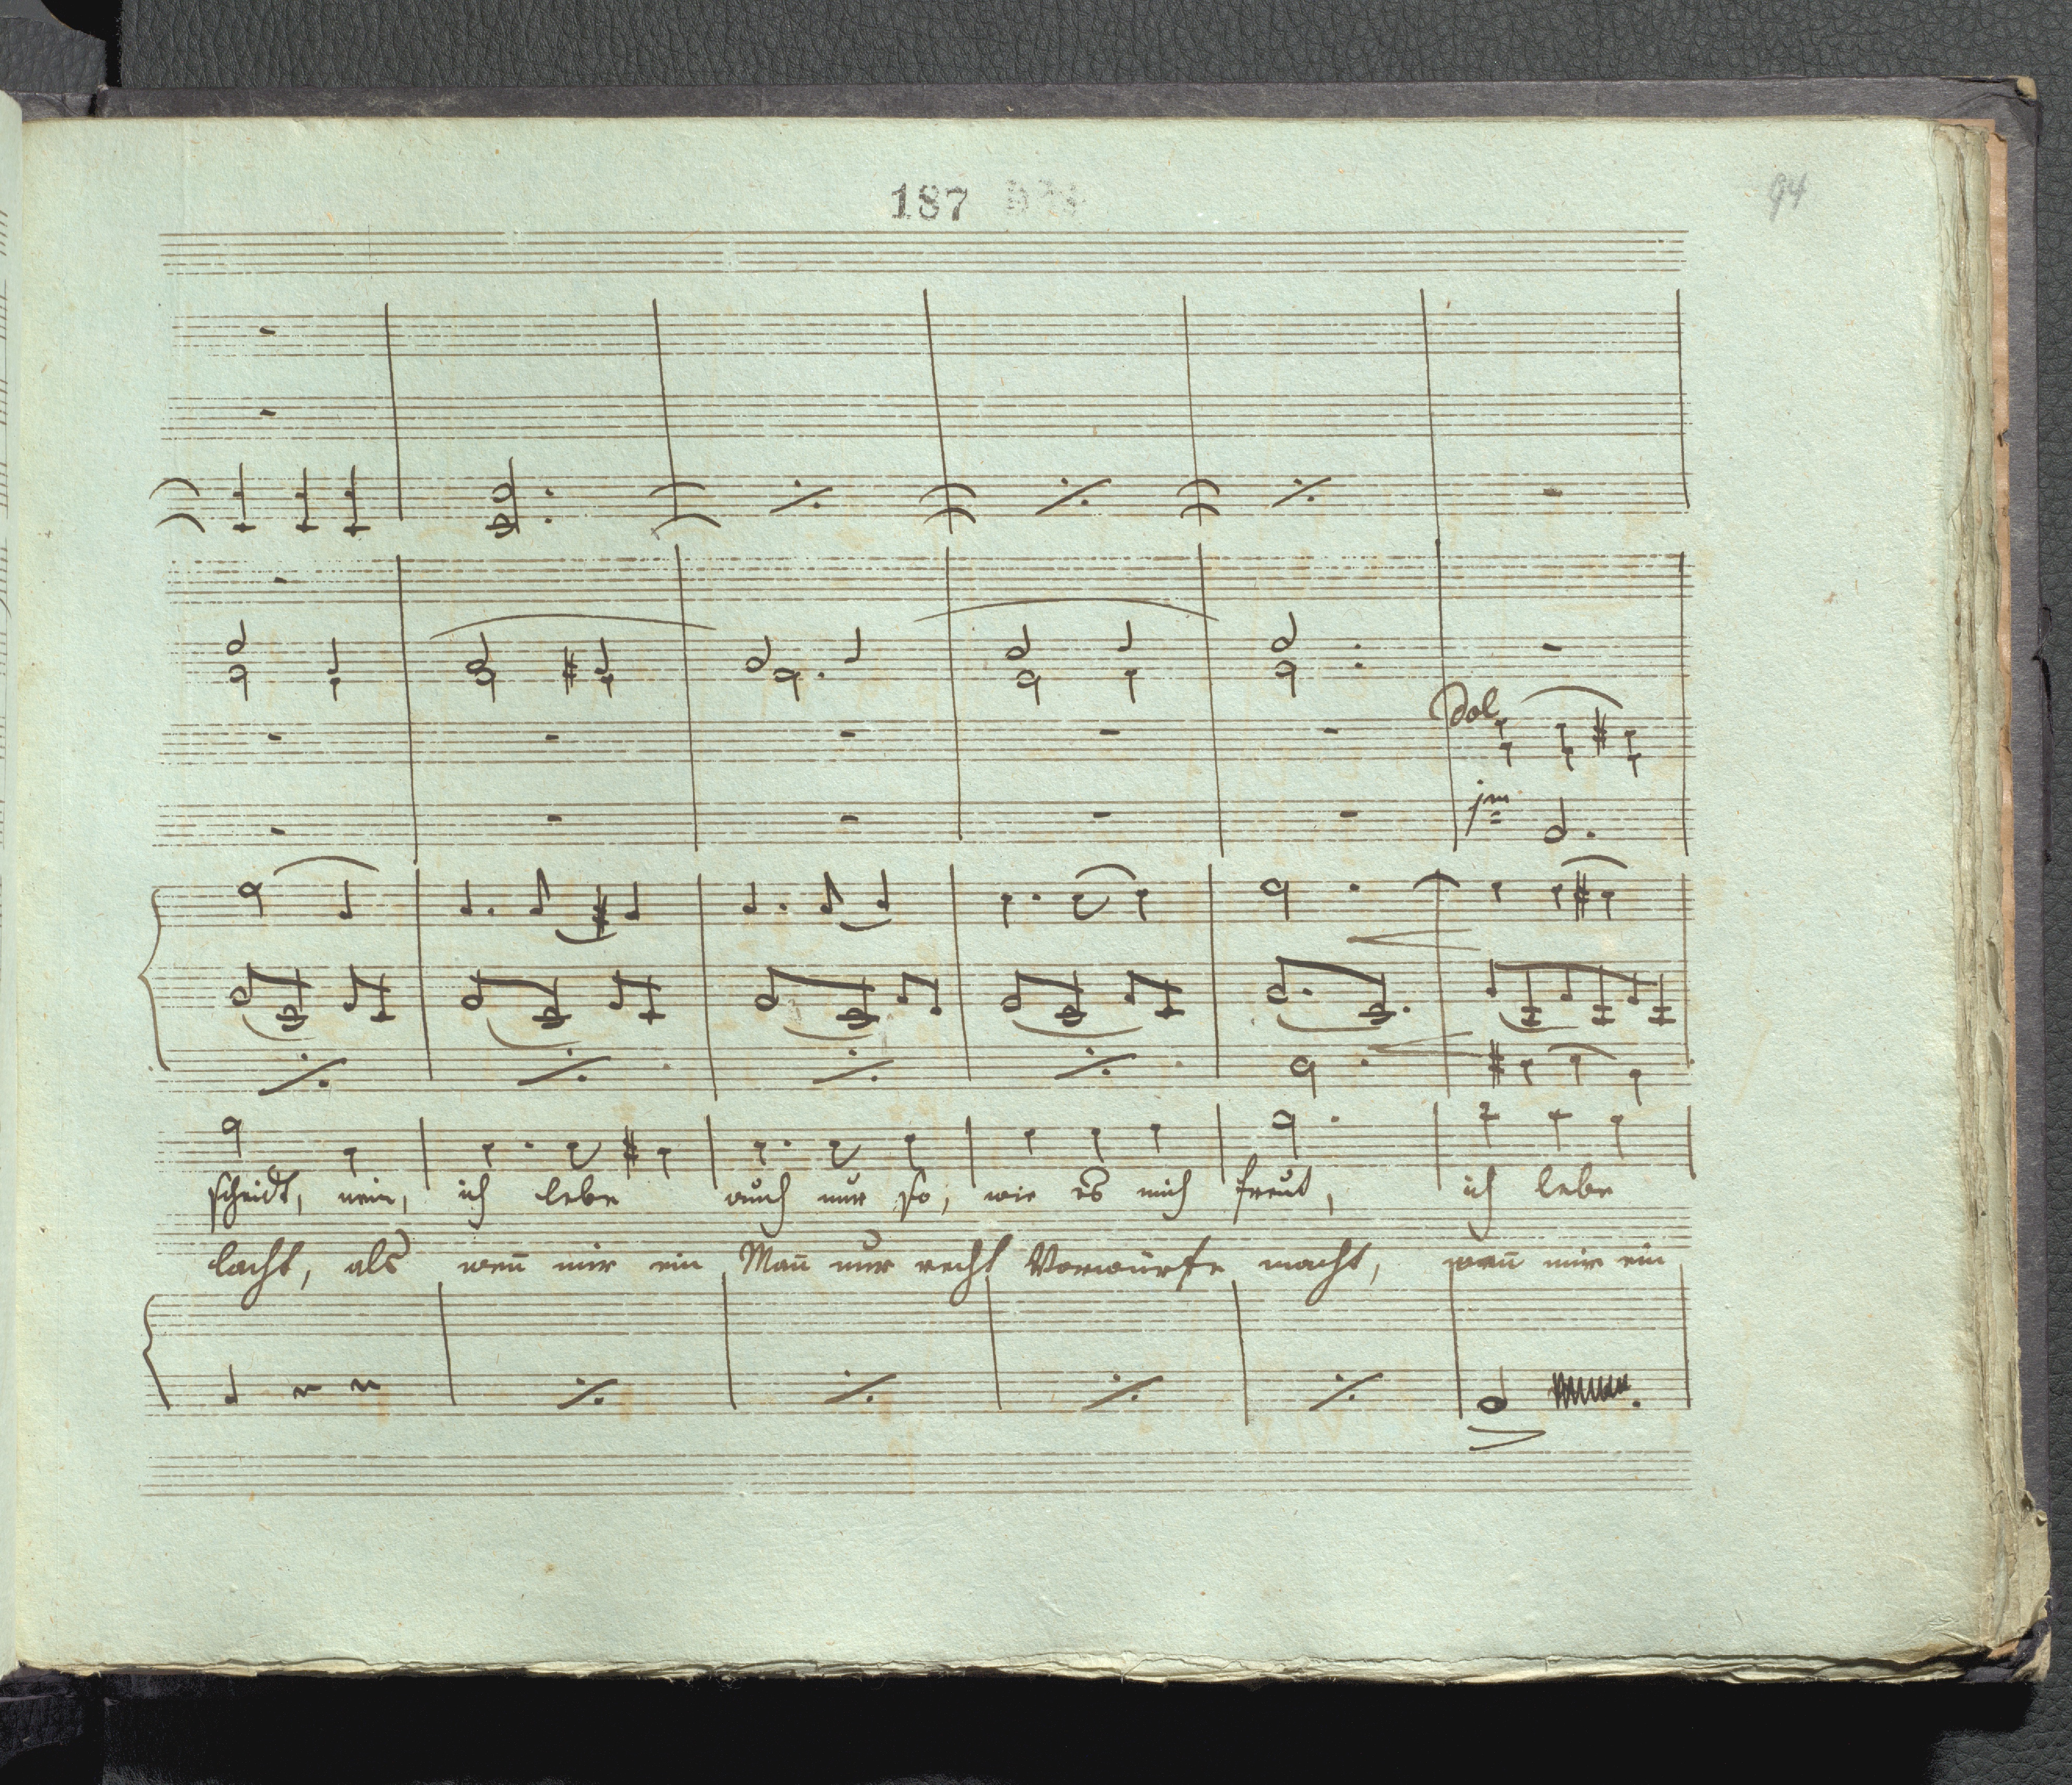 187
94
Dol
scheidt, nein, ich lebe auch nur so, wie es mich freut, ich lebe
lacht, als wen̄ mir ein Man̄ nur recht Vorwürfe macht, wen̄ mir ein